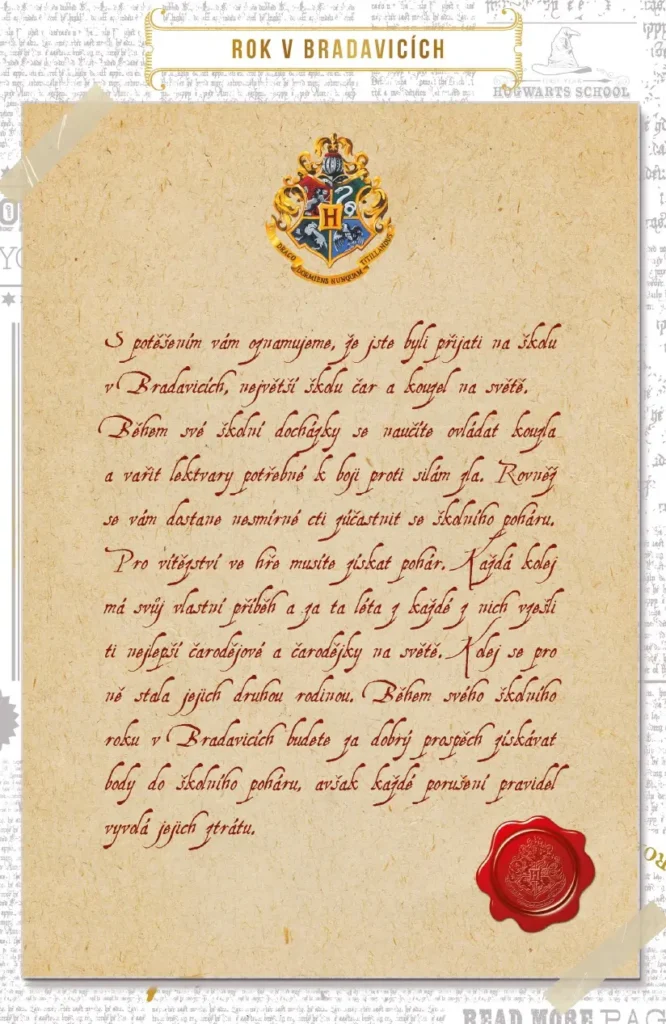 ROK V BRADAVICÍCH
HOGWARTS SCHOOL
H
DRACO DORMIENS NUNQUAM TITILLANDUS
S potěšením vám oznamujeme, že jste byli přijati na školu
v Bradavicích, největší školu čar a kouzel na světě.
Během své školní docházky se naučíte ovládat kouzla
a vařit lektvary potřebné k boji proti silám zla. Rovněž
se vám dostane nesmírné cti zúčastnit se školního poháru.
Pro vítězství ve hře musíte získat pohár. Každá kolej
má svůj vlastní příběh a za ta léta z každé z nich vzešli
ti nejlepší čarodějové a čarodějky na světě. Kolej se pro
ně stala jejich druhou rodinou. Během svého školního
roku v Bradavicích budete za dobrý prospěch získávat
body do školního poháru, avšak každé porušení pravidel
vyvolá jejich ztrátu.
H
READ MORE PAG